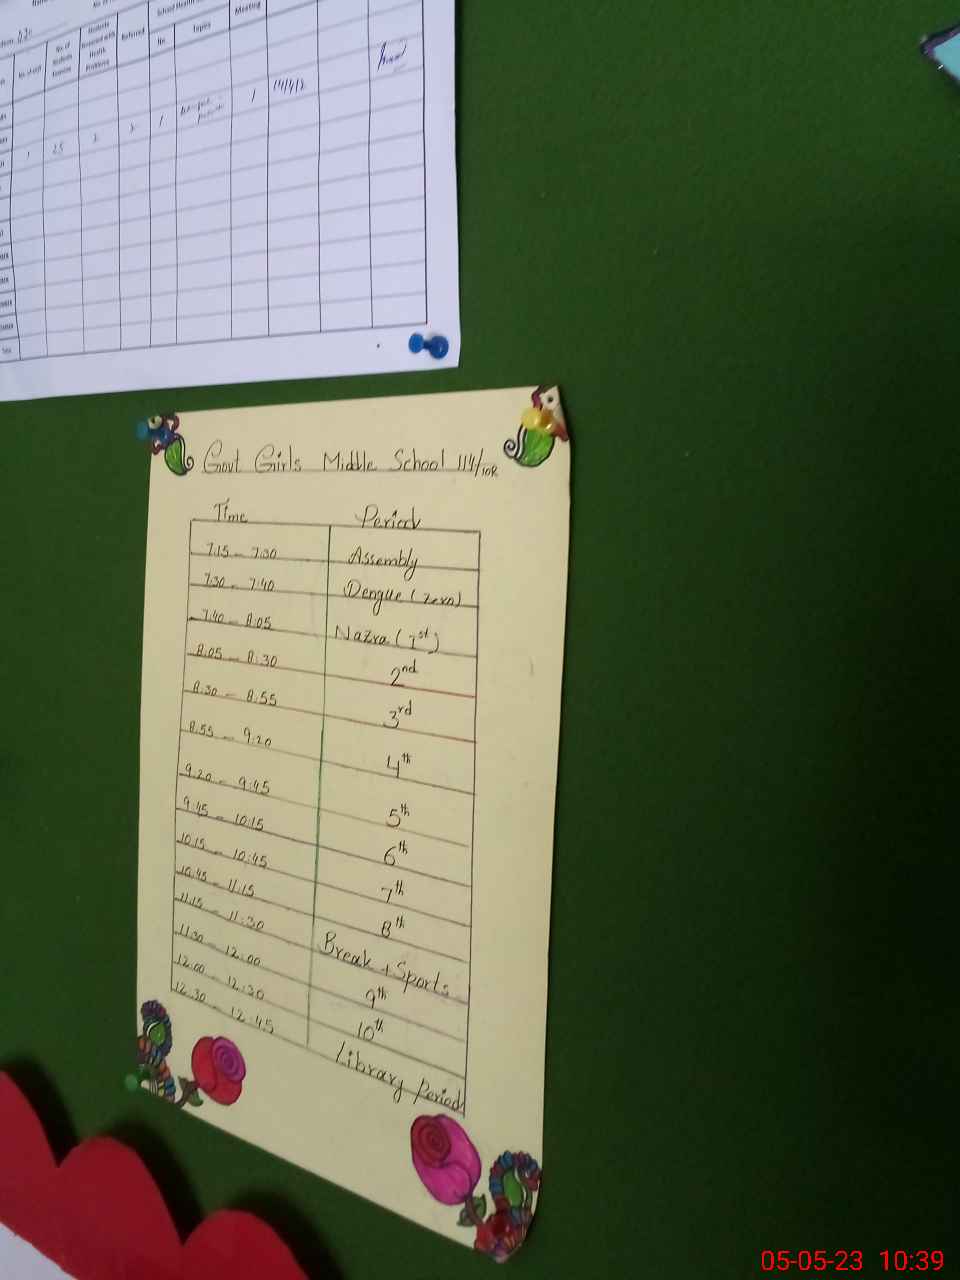 No. of visit
No. of Students Examine
Students Detected with Health Problems
Referred
School Health
No.
Topics
Meeting
1 25 2 2 1 1
Total
Govt Girls Middle School 114/10R
Time Period
7:15 - 7:30 Assembly
7:30 - 7:40 Dengue (zero)
7:40 - 8:05 Nazra (1st)
8:05 - 8:30 2nd
8:30 - 8:55 3rd
8:55 - 9:20 4th
9:20 - 9:45 5th
9:45 - 10:15 6th
10:15 - 10:45 7th
10:45 - 11:15 8th
11:15 - 11:30 Break + Sports
11:30 - 12:00 9th
12:00 - 12:30 10th
12:30 - 12:45 Library Period
05-05-23 10:39